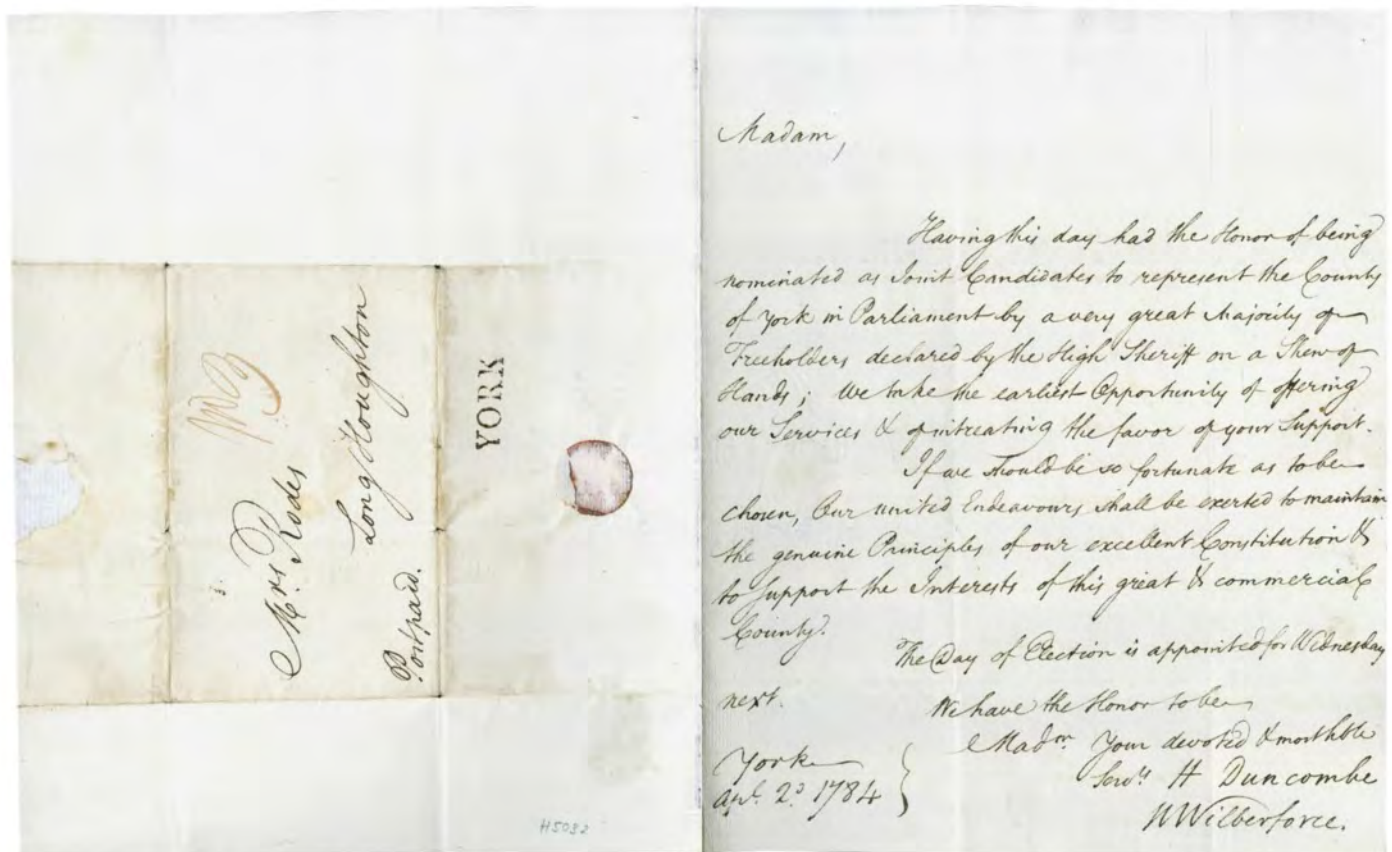 Mrs. Rodes
Long Houghton
Postpaid.
YORK
H5032
Madam,
Having this day had the Honor of being
nominated as Joint Candidates to represent the County
of York in Parliament by a very great Majority of
Freeholders declared by the High Sheriff on a Shew of
Hands; We take the earliest Opportunity of offering
our Services & of intreating the favor of your Support.
If we should be so fortunate as to be
chosen, Our united Endeavours shall be exerted to maintain
the genuine Principles of our excellent Constitution &
to support the Interests of this great & commercial
County.
The Day of Election is appointed for Wednesday
next.
We have the Honor to be
Madm. Your devoted & most hble
Servts H Duncombe
W Wilberforce.
York
Apl. 2d 1784